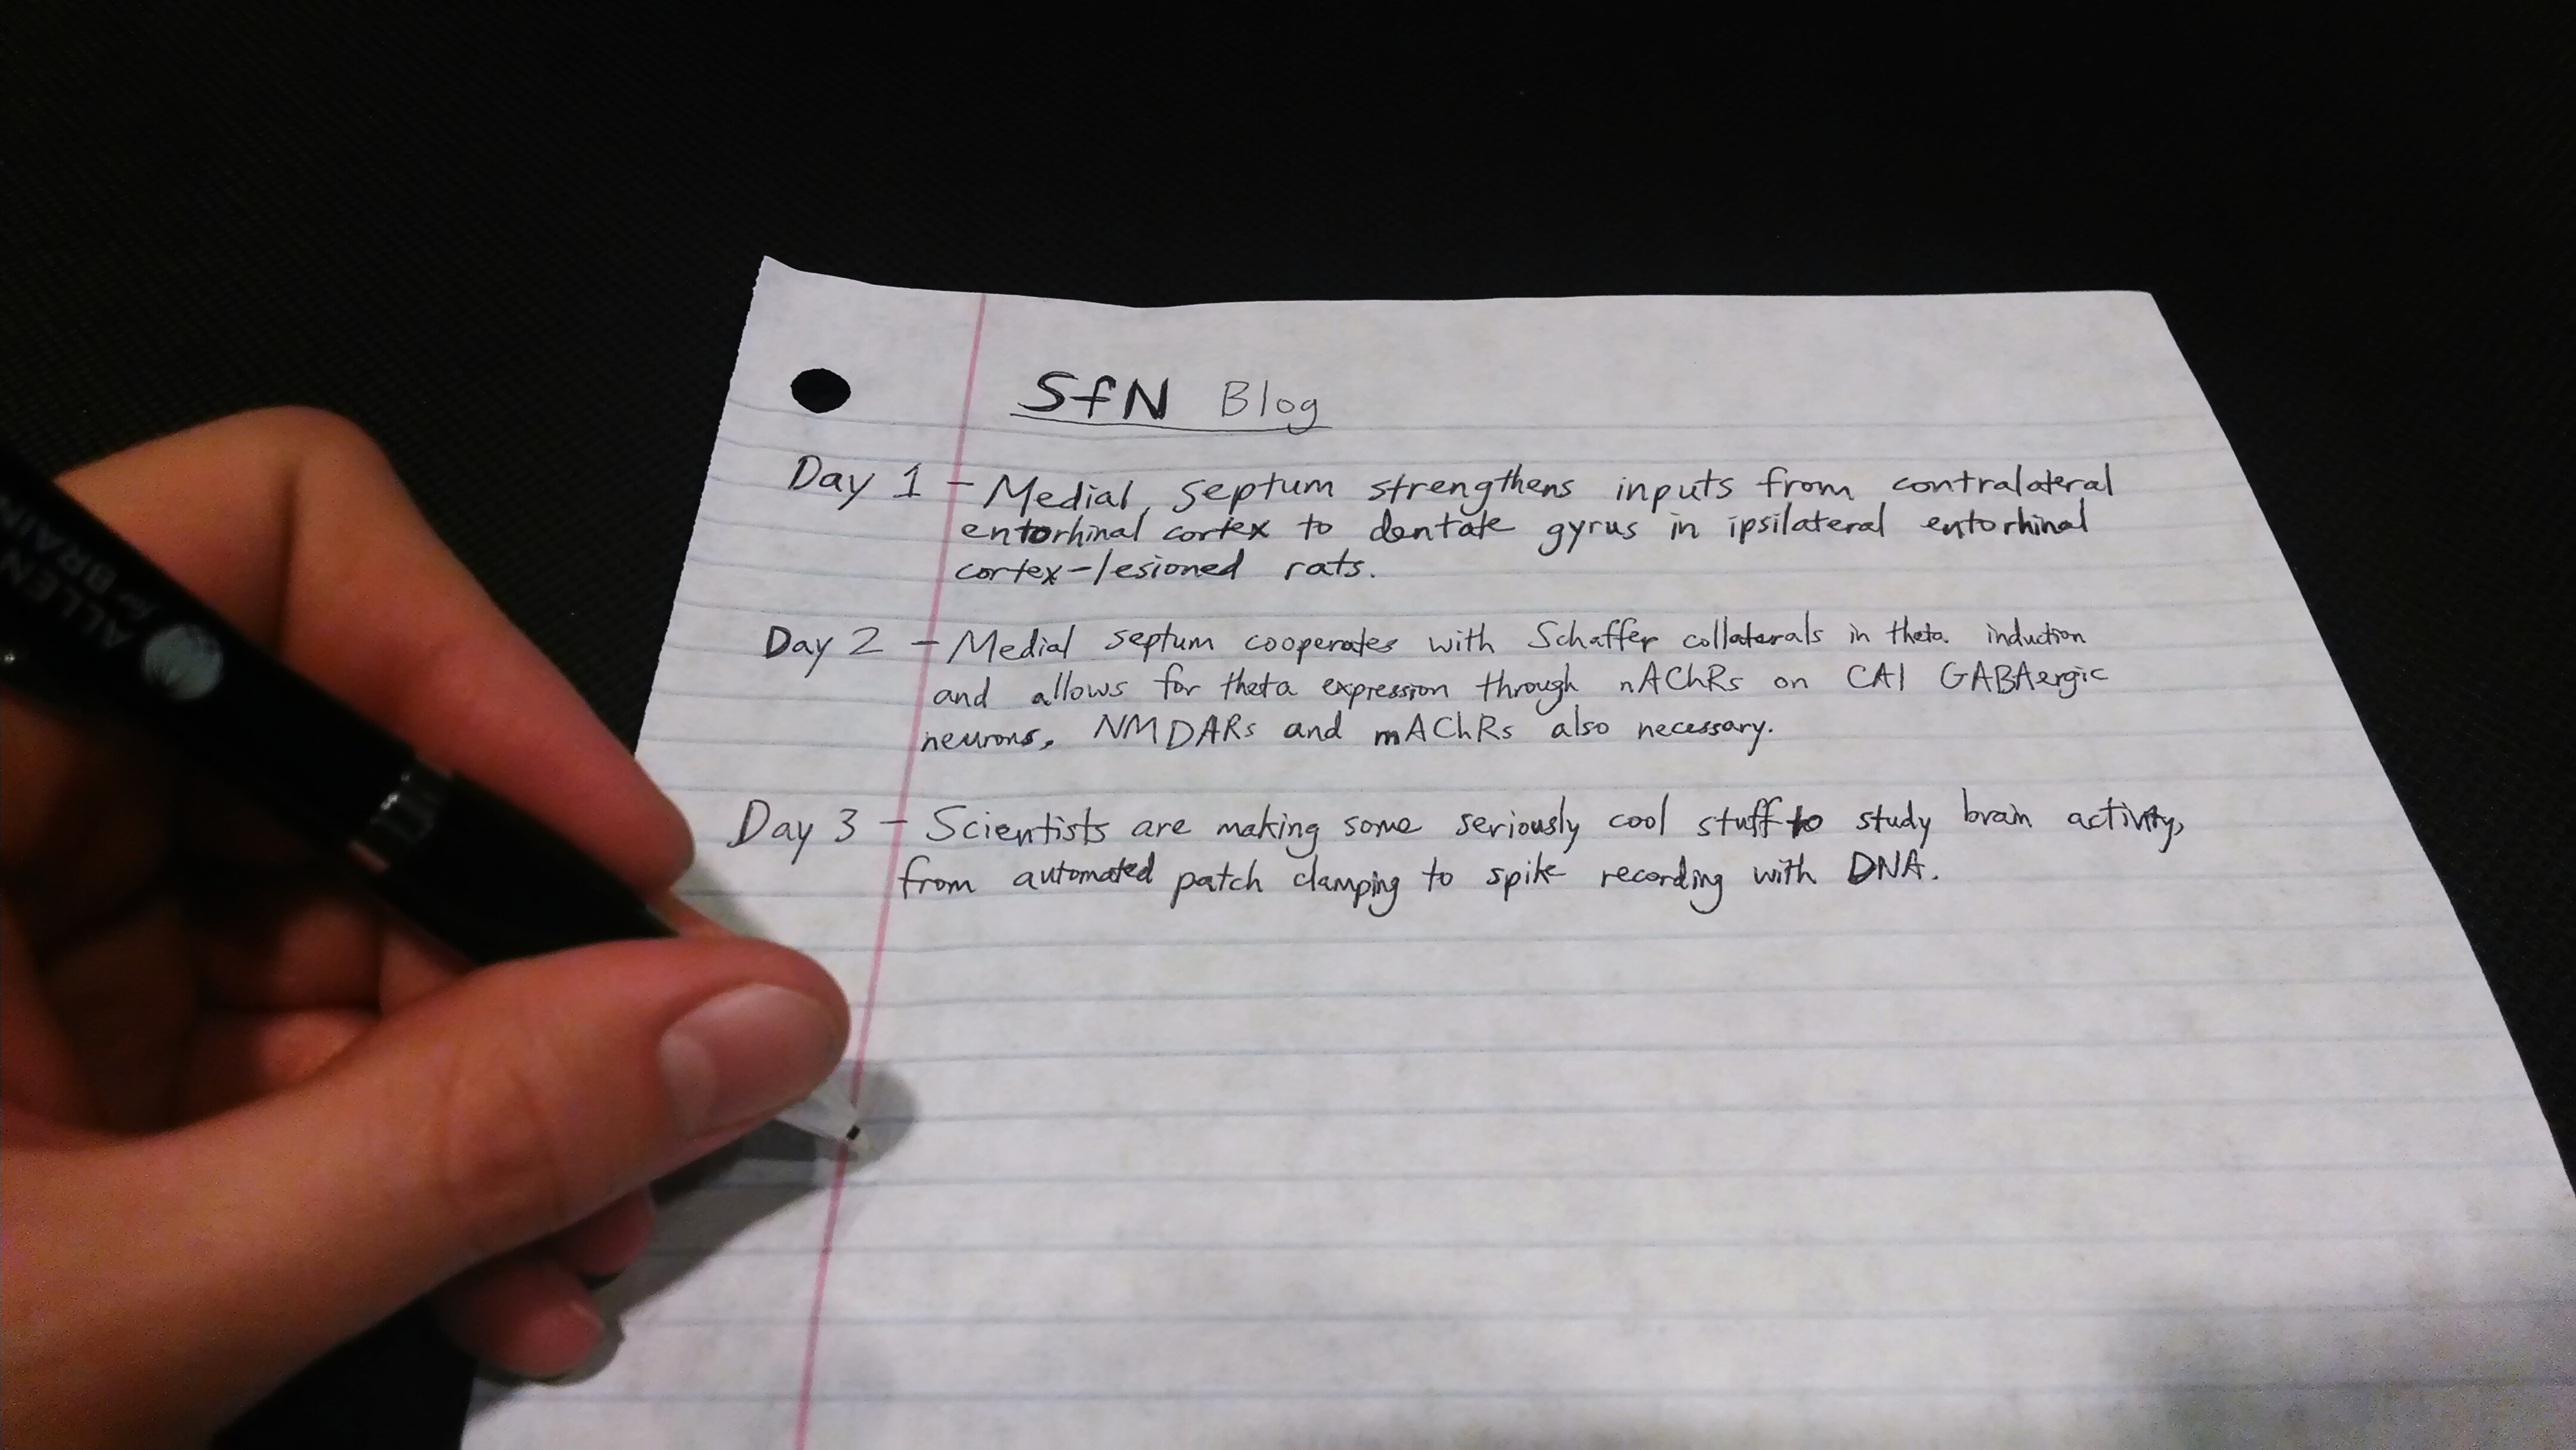 SfN Blog
Day 1 - Medial septum strengthens inputs from contralateral
entorhinal cortex to dentate gyrus in ipsilateral entorhinal
cortex-lesioned rats.
Day 2 - Medial septum cooperates with Schaffer collaterals in theta induction
and allows for theta expression through nAChRs on CA1 GABAergic
neurons. NMDARs and mAChRs also necessary.
Day 3 - Scientists are making some seriously cool stuff to study brain activity,
from automated patch clamping to spike recording with DNA.
ALLEN
for BRAIN